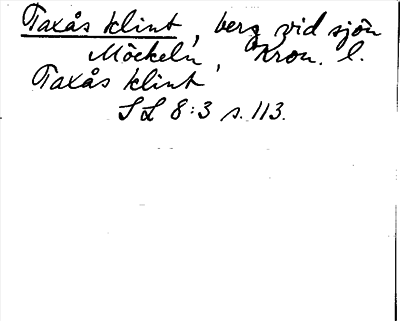 Taxås klint, berg vid sjön
Möckeln, Kron. l.
Taxås klint
SL 8:3 s. 113.